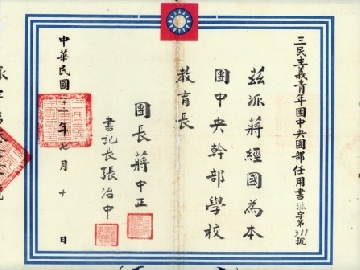 三民主義青年團中央團部任用書派字第311號
茲派蔣經國為本
團中央幹部學校
教育長
團長蔣中正
書記長張治中
中華民國三十三年 月十日